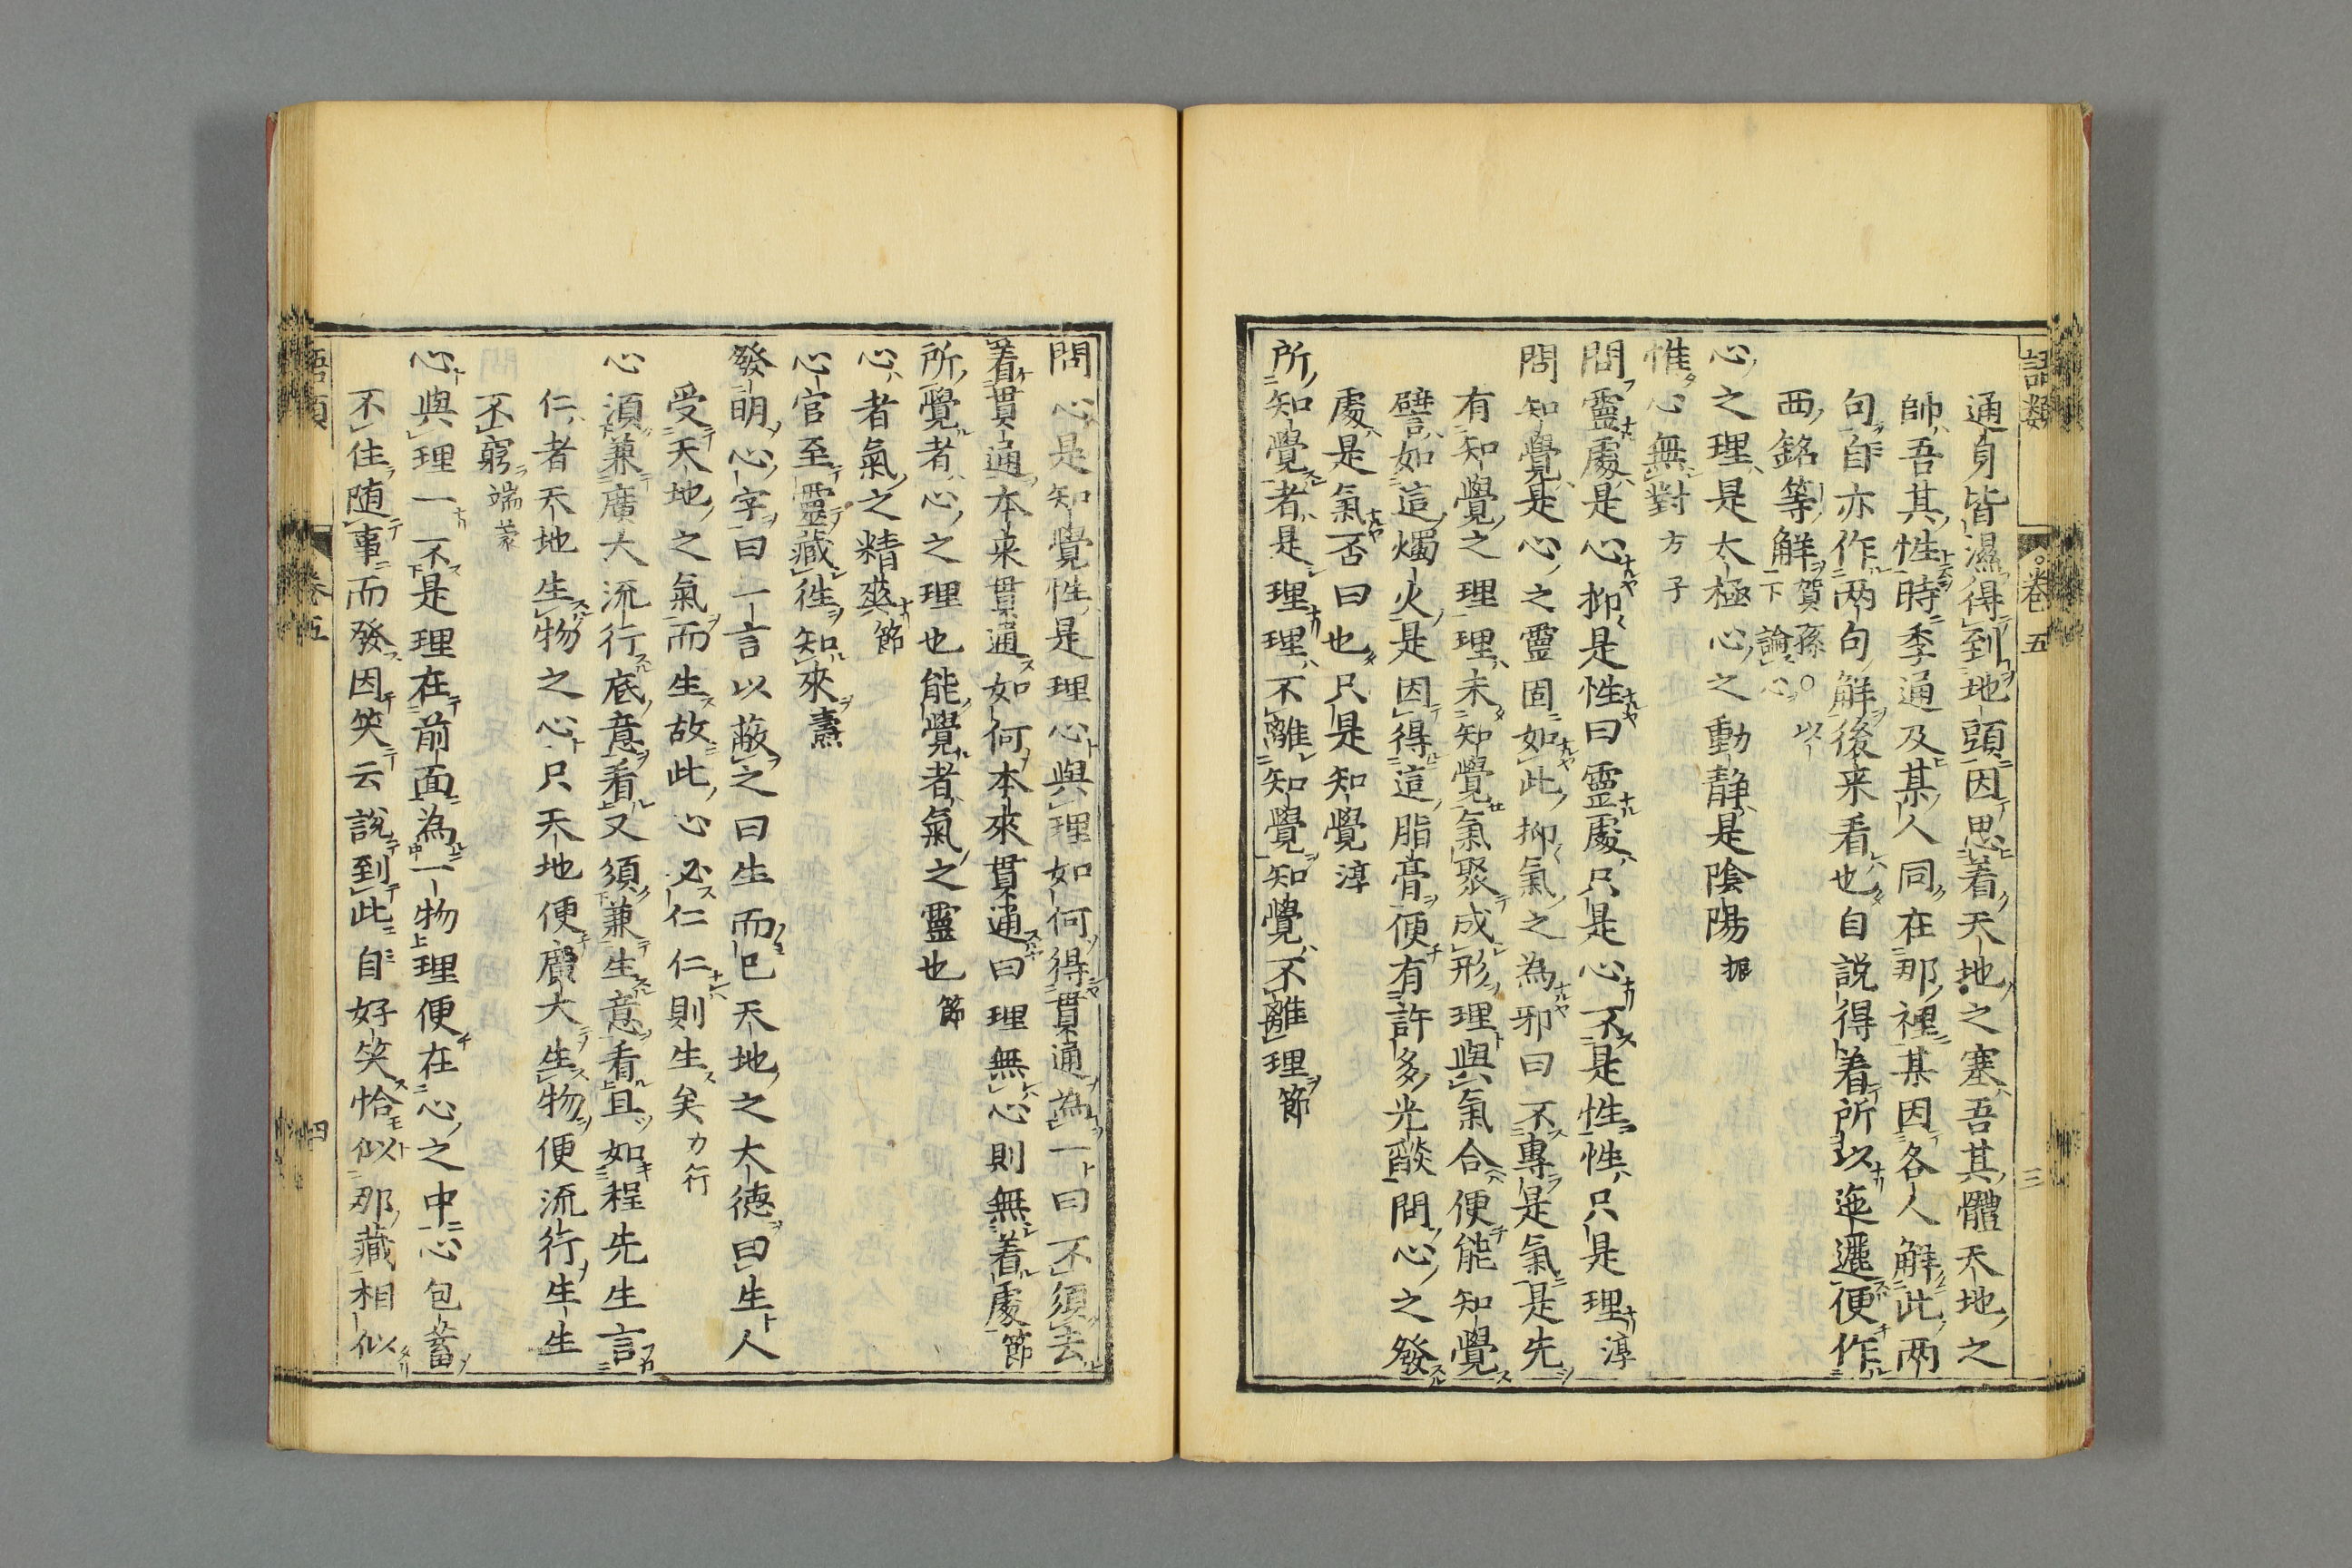 語類
卷五
三
通身皆濕得到地頭因思著天地之塞吾其體天地之
帥吾其性時季通及某人同在那裡某因各人解此兩
句自亦作两句解後来看也自説得着所以迤邐便作
西銘等解賀孫○以下論心
心之理是太極心之動静是陰陽振
惟心無對方子
問靈處是心抑是性曰靈處只是心不是性性只是理淳
問知覺是心之靈固如此抑氣之為邪曰不專是氣是先
有知覺之理理未知覺氣聚成形理與氣合便能知覺
譬如這燭火是因得這脂膏便有許多光燄問心之發
處是氣否曰也只是知覺淳
所知覺者是理理不離知覺知覺不離理節
問心是知覺性是理心與理如何得貫通為一曰不須去
着貫通本来貫通如何本來貫通曰理無心則無着處節
所覺者心之理也能覺者氣之靈也節
心者氣之精爽節
心官至靈藏徃知來燾
發明心字曰一言以蔽之曰生而已天地之大德曰生人
受天地之氣而生故此心必仁仁則生矣力行
心須兼廣大流行底意看又須兼生意看且如程先生言
仁者天地生物之心只天地便廣大生物便流行生生
不窮端蒙
心與理一不是理在前面為一物理便在心之中心包蓄
不住随事而發因笑云說到此自好笑恰似那藏相似
語類
卷五
四